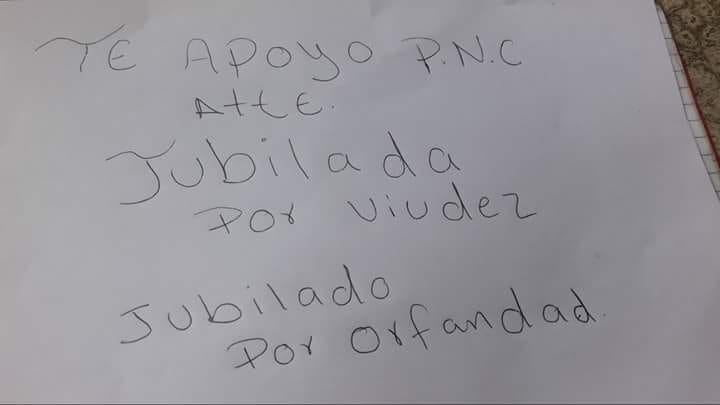 TE APOYO P.N.C
Atte.
Jubilada
Por viudez
Jubilado
Por Orfandad.